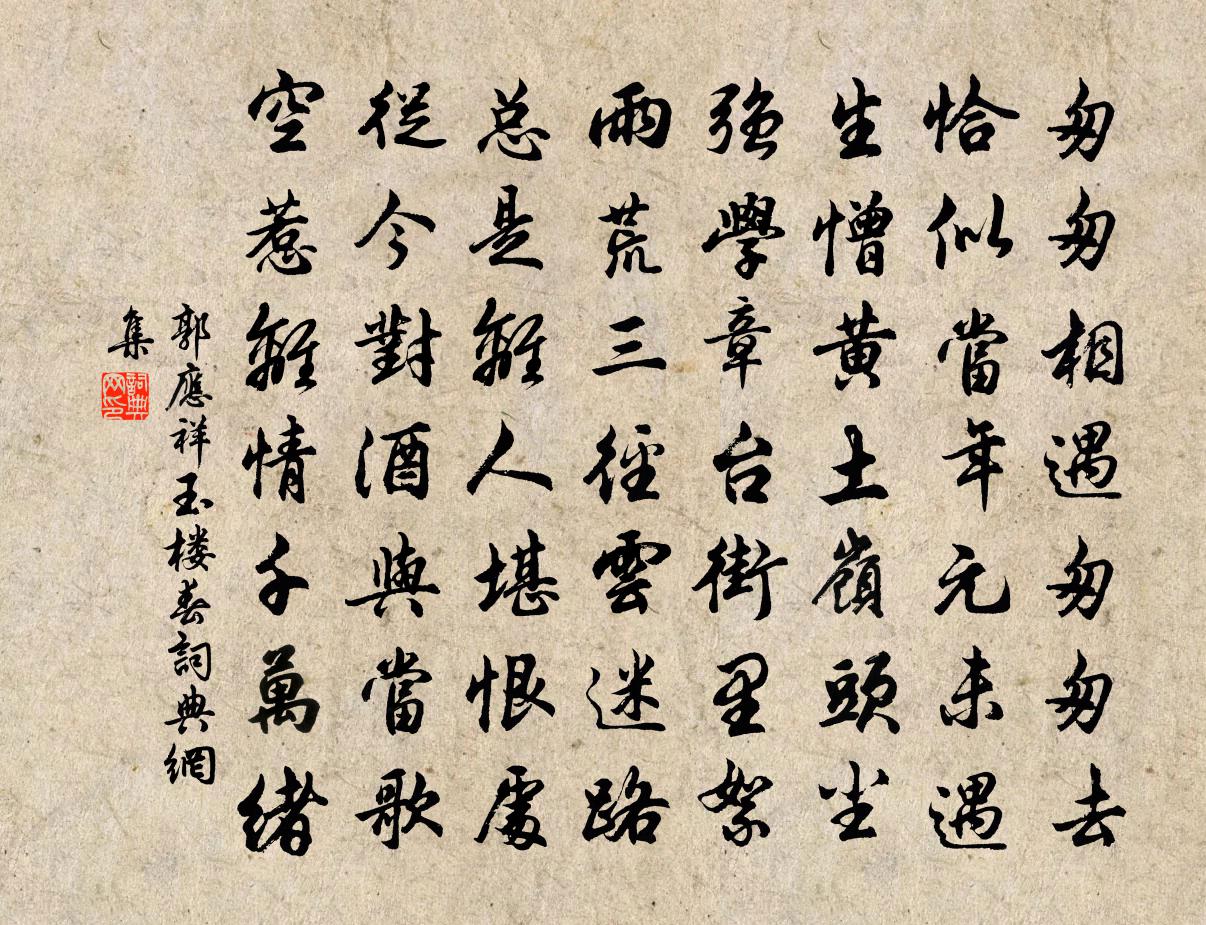 匆匆相遇匆匆去
恰似當年元未遇
生憎黄土嶺頭尘
强學章台街里絮
雨荒三徑雲迷路
总是離人堪恨處
從今對酒與當歌
空惹離情千萬緒
郭應祥玉楼春詞典網
集
詞典网印